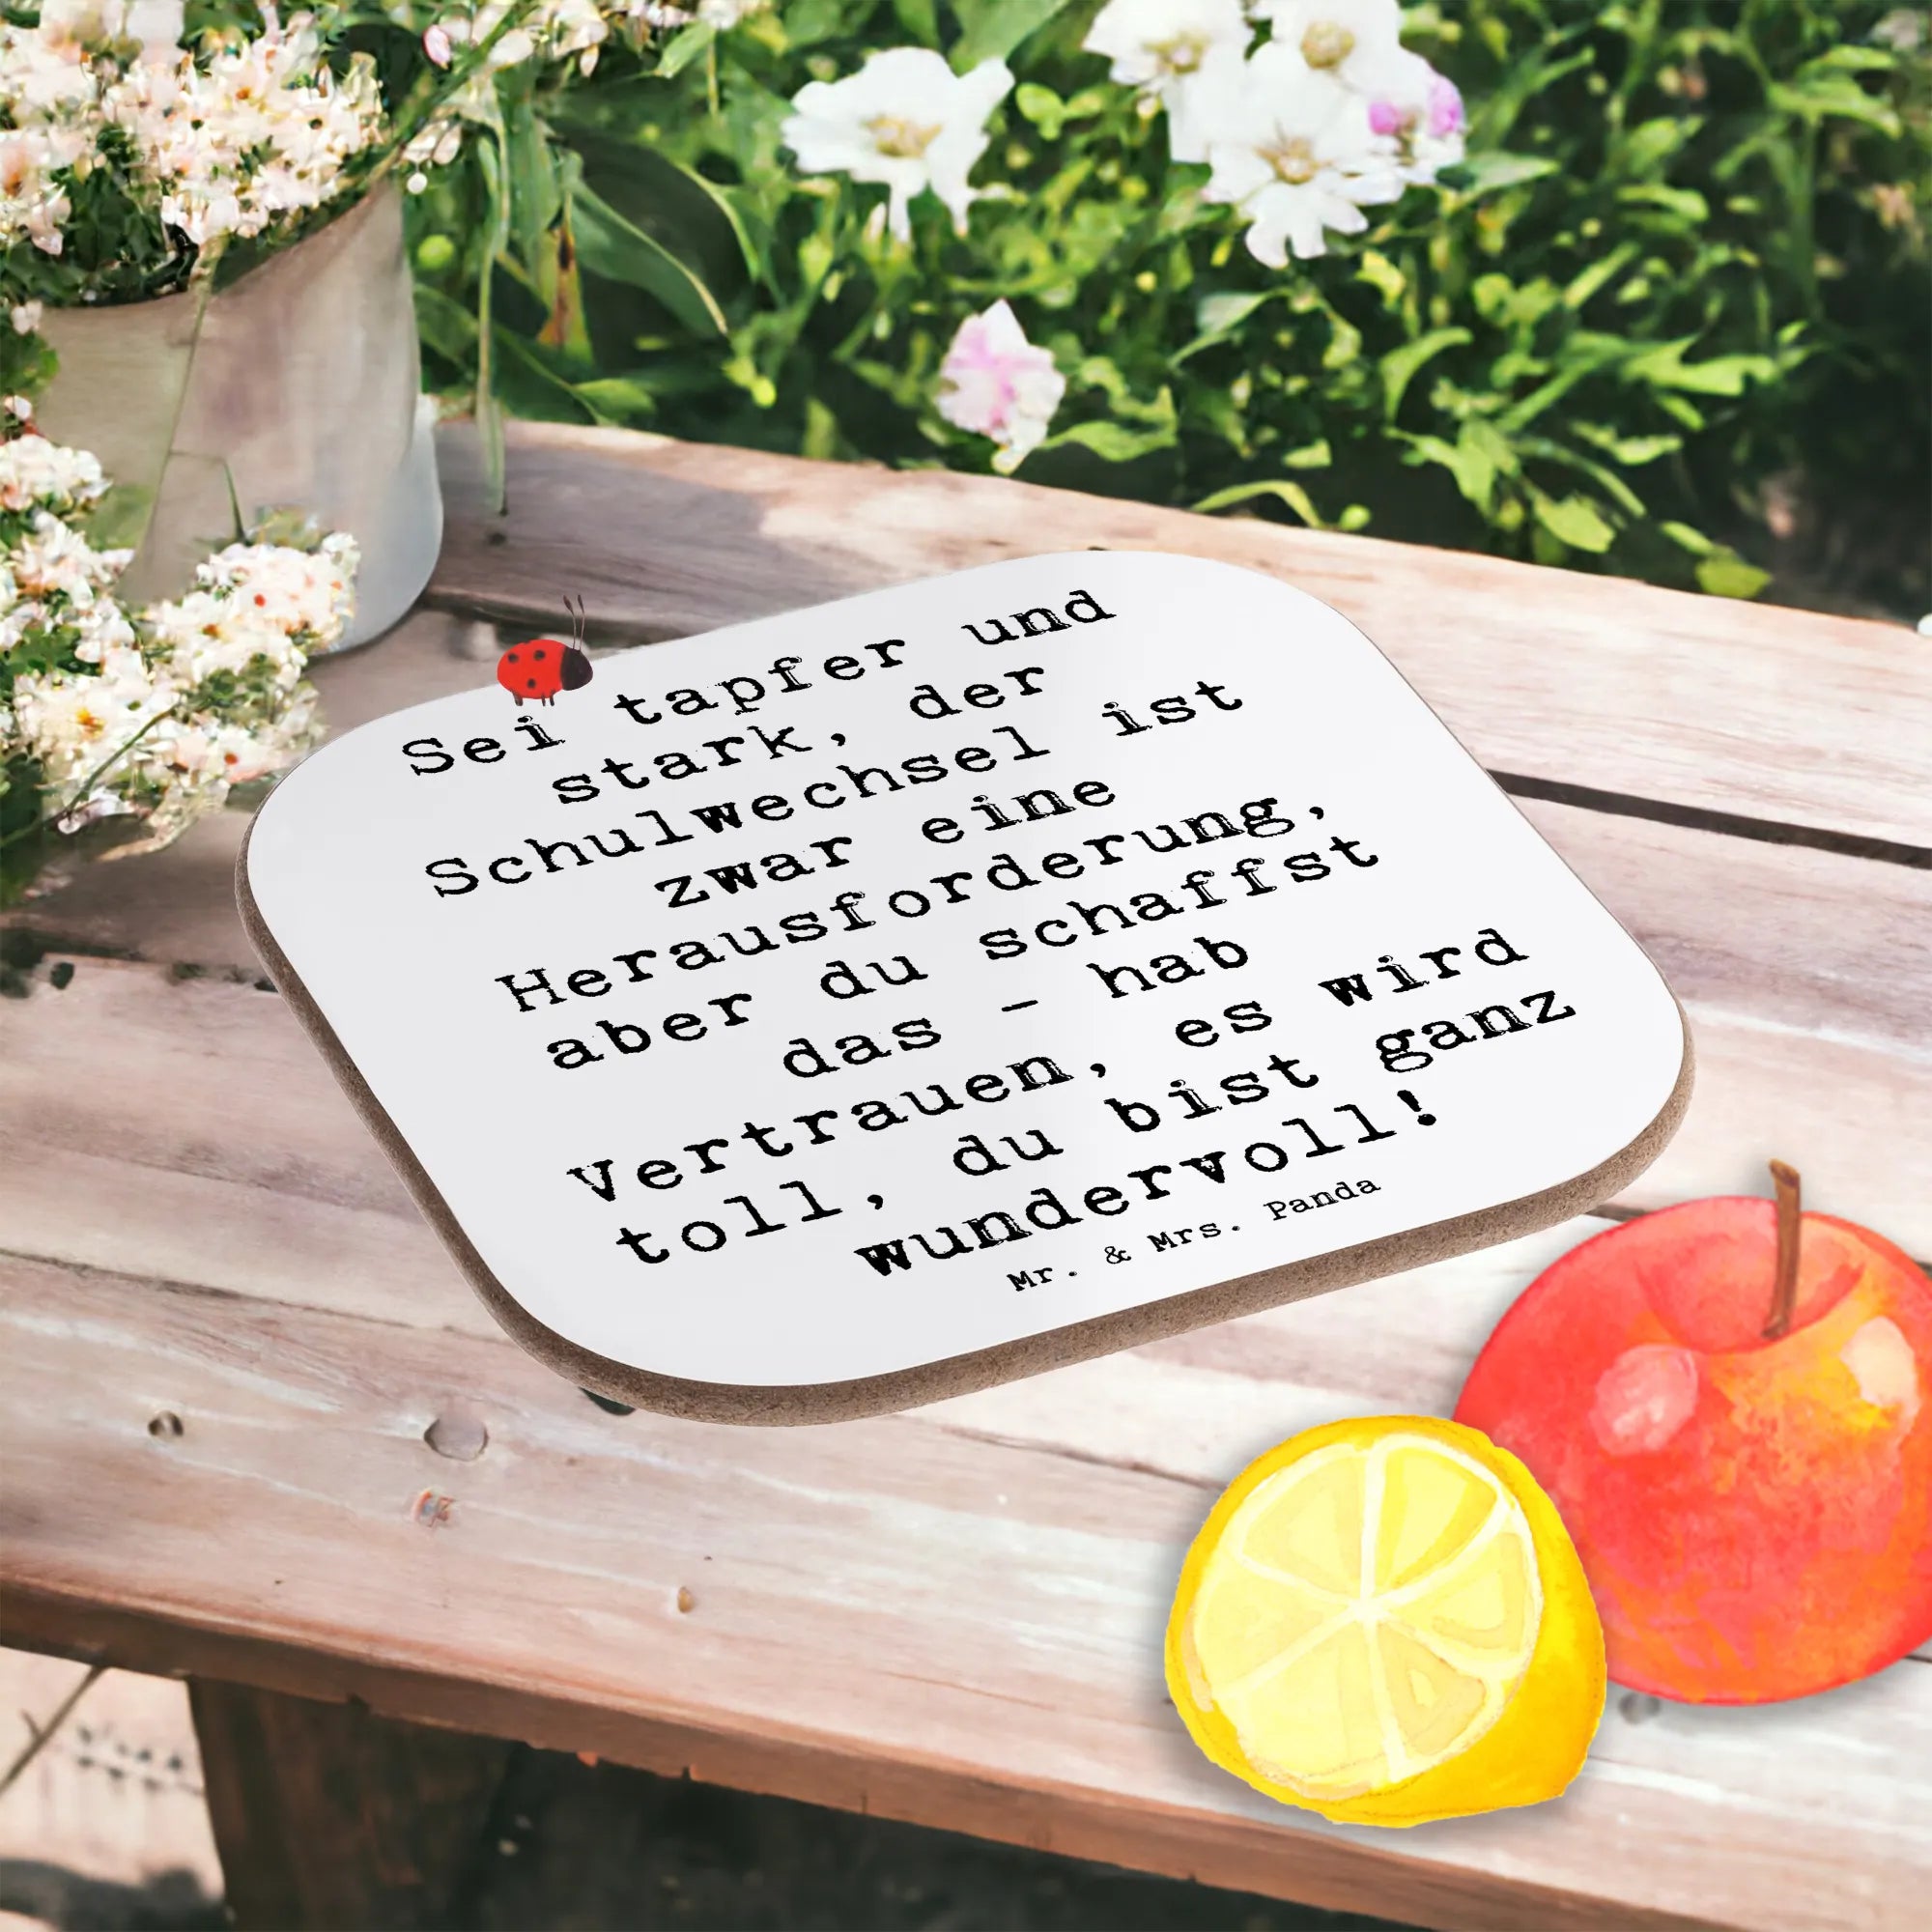 Sei tapfer und
stark, der
Schulwechsel ist
zwar eine
Herausforderung,
aber du schaffst
das - hab
Vertrauen, es wird
toll, du bist ganz
wundervoll!
Mr. & Mrs. Panda